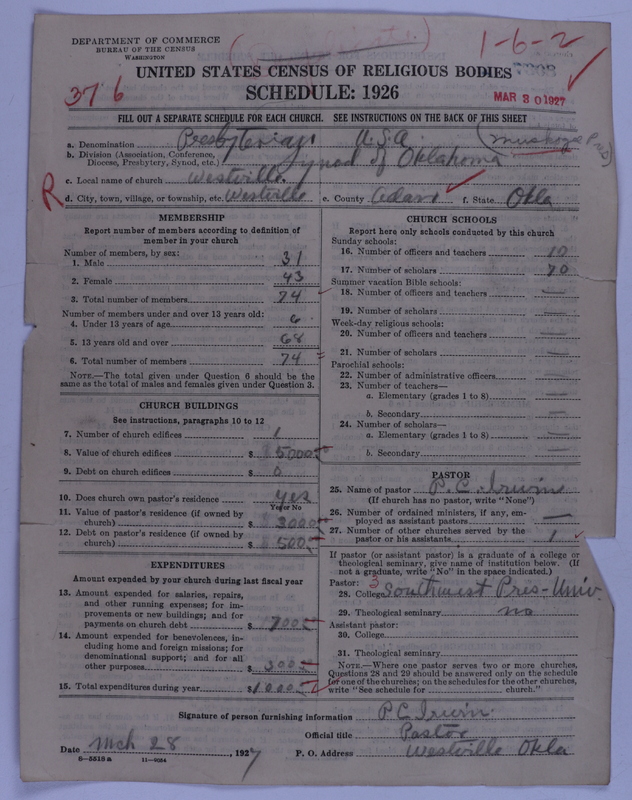 DEPARTMENT OF COMMERCE
BUREAU OF THE CENSUS
WASHINGTON
1-6-2
UNITED STATES CENSUS OF RELIGIOUS BODIES
376
SCHEDULE: 1926
MAR 30 1927
FILL OUT A SEPARATE SCHEDULE FOR EACH CHURCH. SEE INSTRUCTIONS ON THE BACK OF THIS SHEET
a. Denomination Presbyterian U.S.A.
b. Division (Association, Conference, Diocese, Presbytery, Synod, etc.) Synod of Oklahoma
c. Local name of church Westville
R
d. City, town, village, or township, etc. Westville e. County Adair f. State Okla
MEMBERSHIP
Report number of members according to definition of
member in your church
Number of members, by sex:
1. Male 31
2. Female 43
3. Total number of members 74
Number of members under and over 13 years old:
4. Under 13 years of age 6
5. 13 years old and over 68
6. Total number of members 74
NOTE.—The total given under Question 6 should be the
same as the total of males and females given under Question 3.
CHURCH BUILDINGS
See instructions, paragraphs 10 to 12
7. Number of church edifices 1
8. Value of church edifices $ 5000
9. Debt on church edifices $ 0
10. Does church own pastor's residence yes
Yes or No
11. Value of pastor's residence (if owned by
church) $ 3000
12. Debt on pastor's residence (if owned by
church) $ 500
EXPENDITURES
Amount expended by your church during last fiscal year
13. Amount expended for salaries, repairs,
and other running expenses; for im-
provements or new buildings; and for
payments on church debt $ 700
14. Amount expended for benevolences, in-
cluding home and foreign missions; for
denominational support; and for all
other purposes $ 300
15. Total expenditures during year $ 1000
CHURCH SCHOOLS
Report here only schools conducted by this church
Sunday schools:
16. Number of officers and teachers 10
17. Number of scholars 70
Summer vacation Bible schools:
18. Number of officers and teachers —
19. Number of scholars —
Week-day religious schools:
20. Number of officers and teachers —
21. Number of scholars —
Parochial schools:
22. Number of administrative officers —
23. Number of teachers—
a. Elementary (grades 1 to 8) —
b. Secondary —
24. Number of scholars—
a. Elementary (grades 1 to 8) —
b. Secondary —
PASTOR
25. Name of pastor P. C. Irwin
(If church has no pastor, write "None")
26. Number of ordained ministers, if any, em-
ployed as assistant pastors —
27. Number of other churches served by the
pastor or his assistants 1
If pastor (or assistant pastor) is a graduate of a college or
theological seminary, give name of institution below. (If
not a graduate, write "No" in the space indicated.)
Pastor: 3
28. College Southwest Pres-Univ.
29. Theological seminary no
Assistant pastor:
30. College
31. Theological seminary
NOTE.—Where one pastor serves two or more churches,
Questions 28 and 29 should be answered only on the schedule
for one of the churches; on the schedules for the other churches,
write "See schedule for church."
Signature of person furnishing information P C Irwin
Official title Pastor
Date Mch 28, 1927 P. O. Address Westville Okla
8-5518a 11-9234